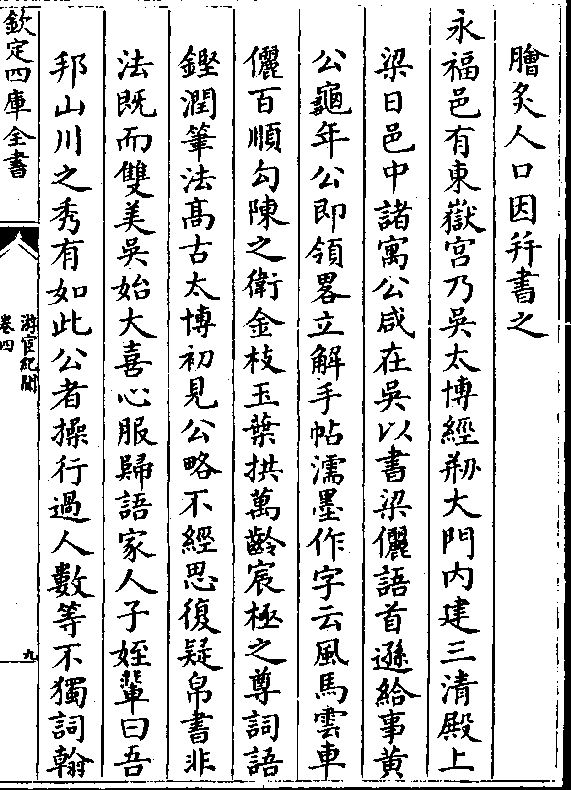 膾炙人口因并書之
永福邑有東嶽宫乃吳太博經刱大門内建三清殿上
梁日邑中諸寓公咸在吳以書梁儷語首遜給事黄
公龜年公即領畧立解手帖濡墨作字云風馬雲車
儷百順勾陳之衛金枝玉葉拱萬齡宸極之尊詞語
鏗潤筆法髙古太博初見公略不經思復疑帛書非
法既而雙美吳始大喜心服歸語家人子姪輩曰吾
邦山川之秀有如此公者操行過人數等不獨詞翰
欽定四庫全書
游宦紀聞
卷四
九